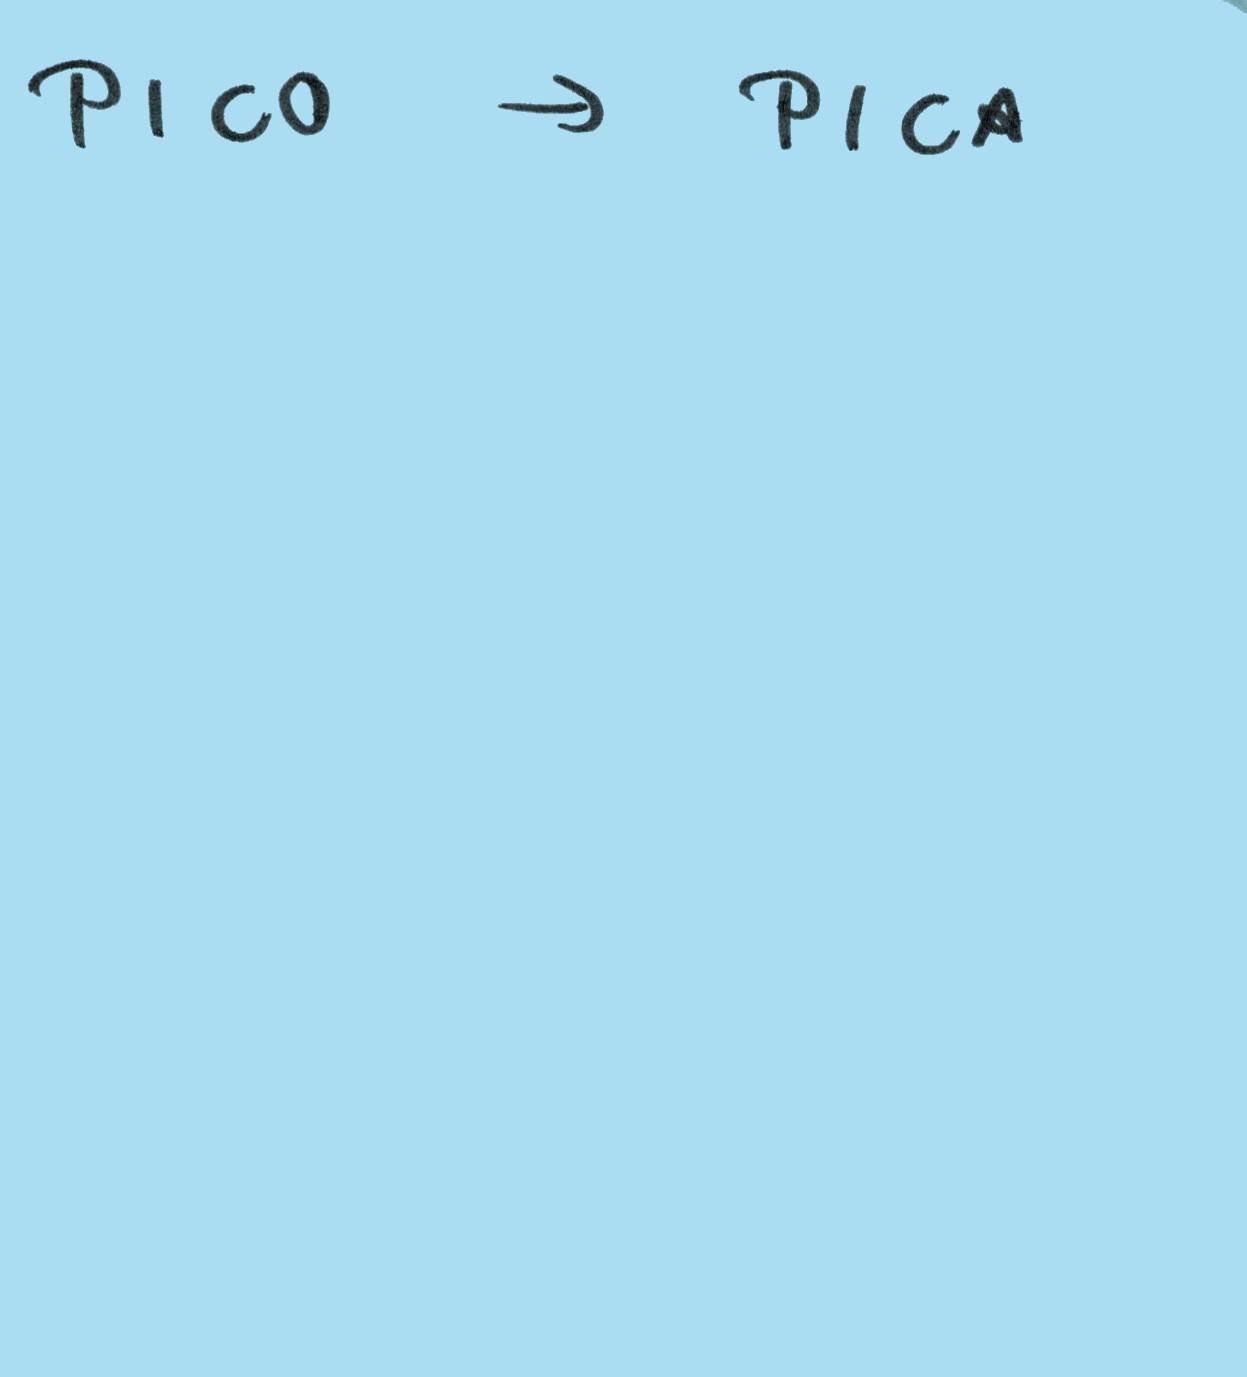 PICO → PICA